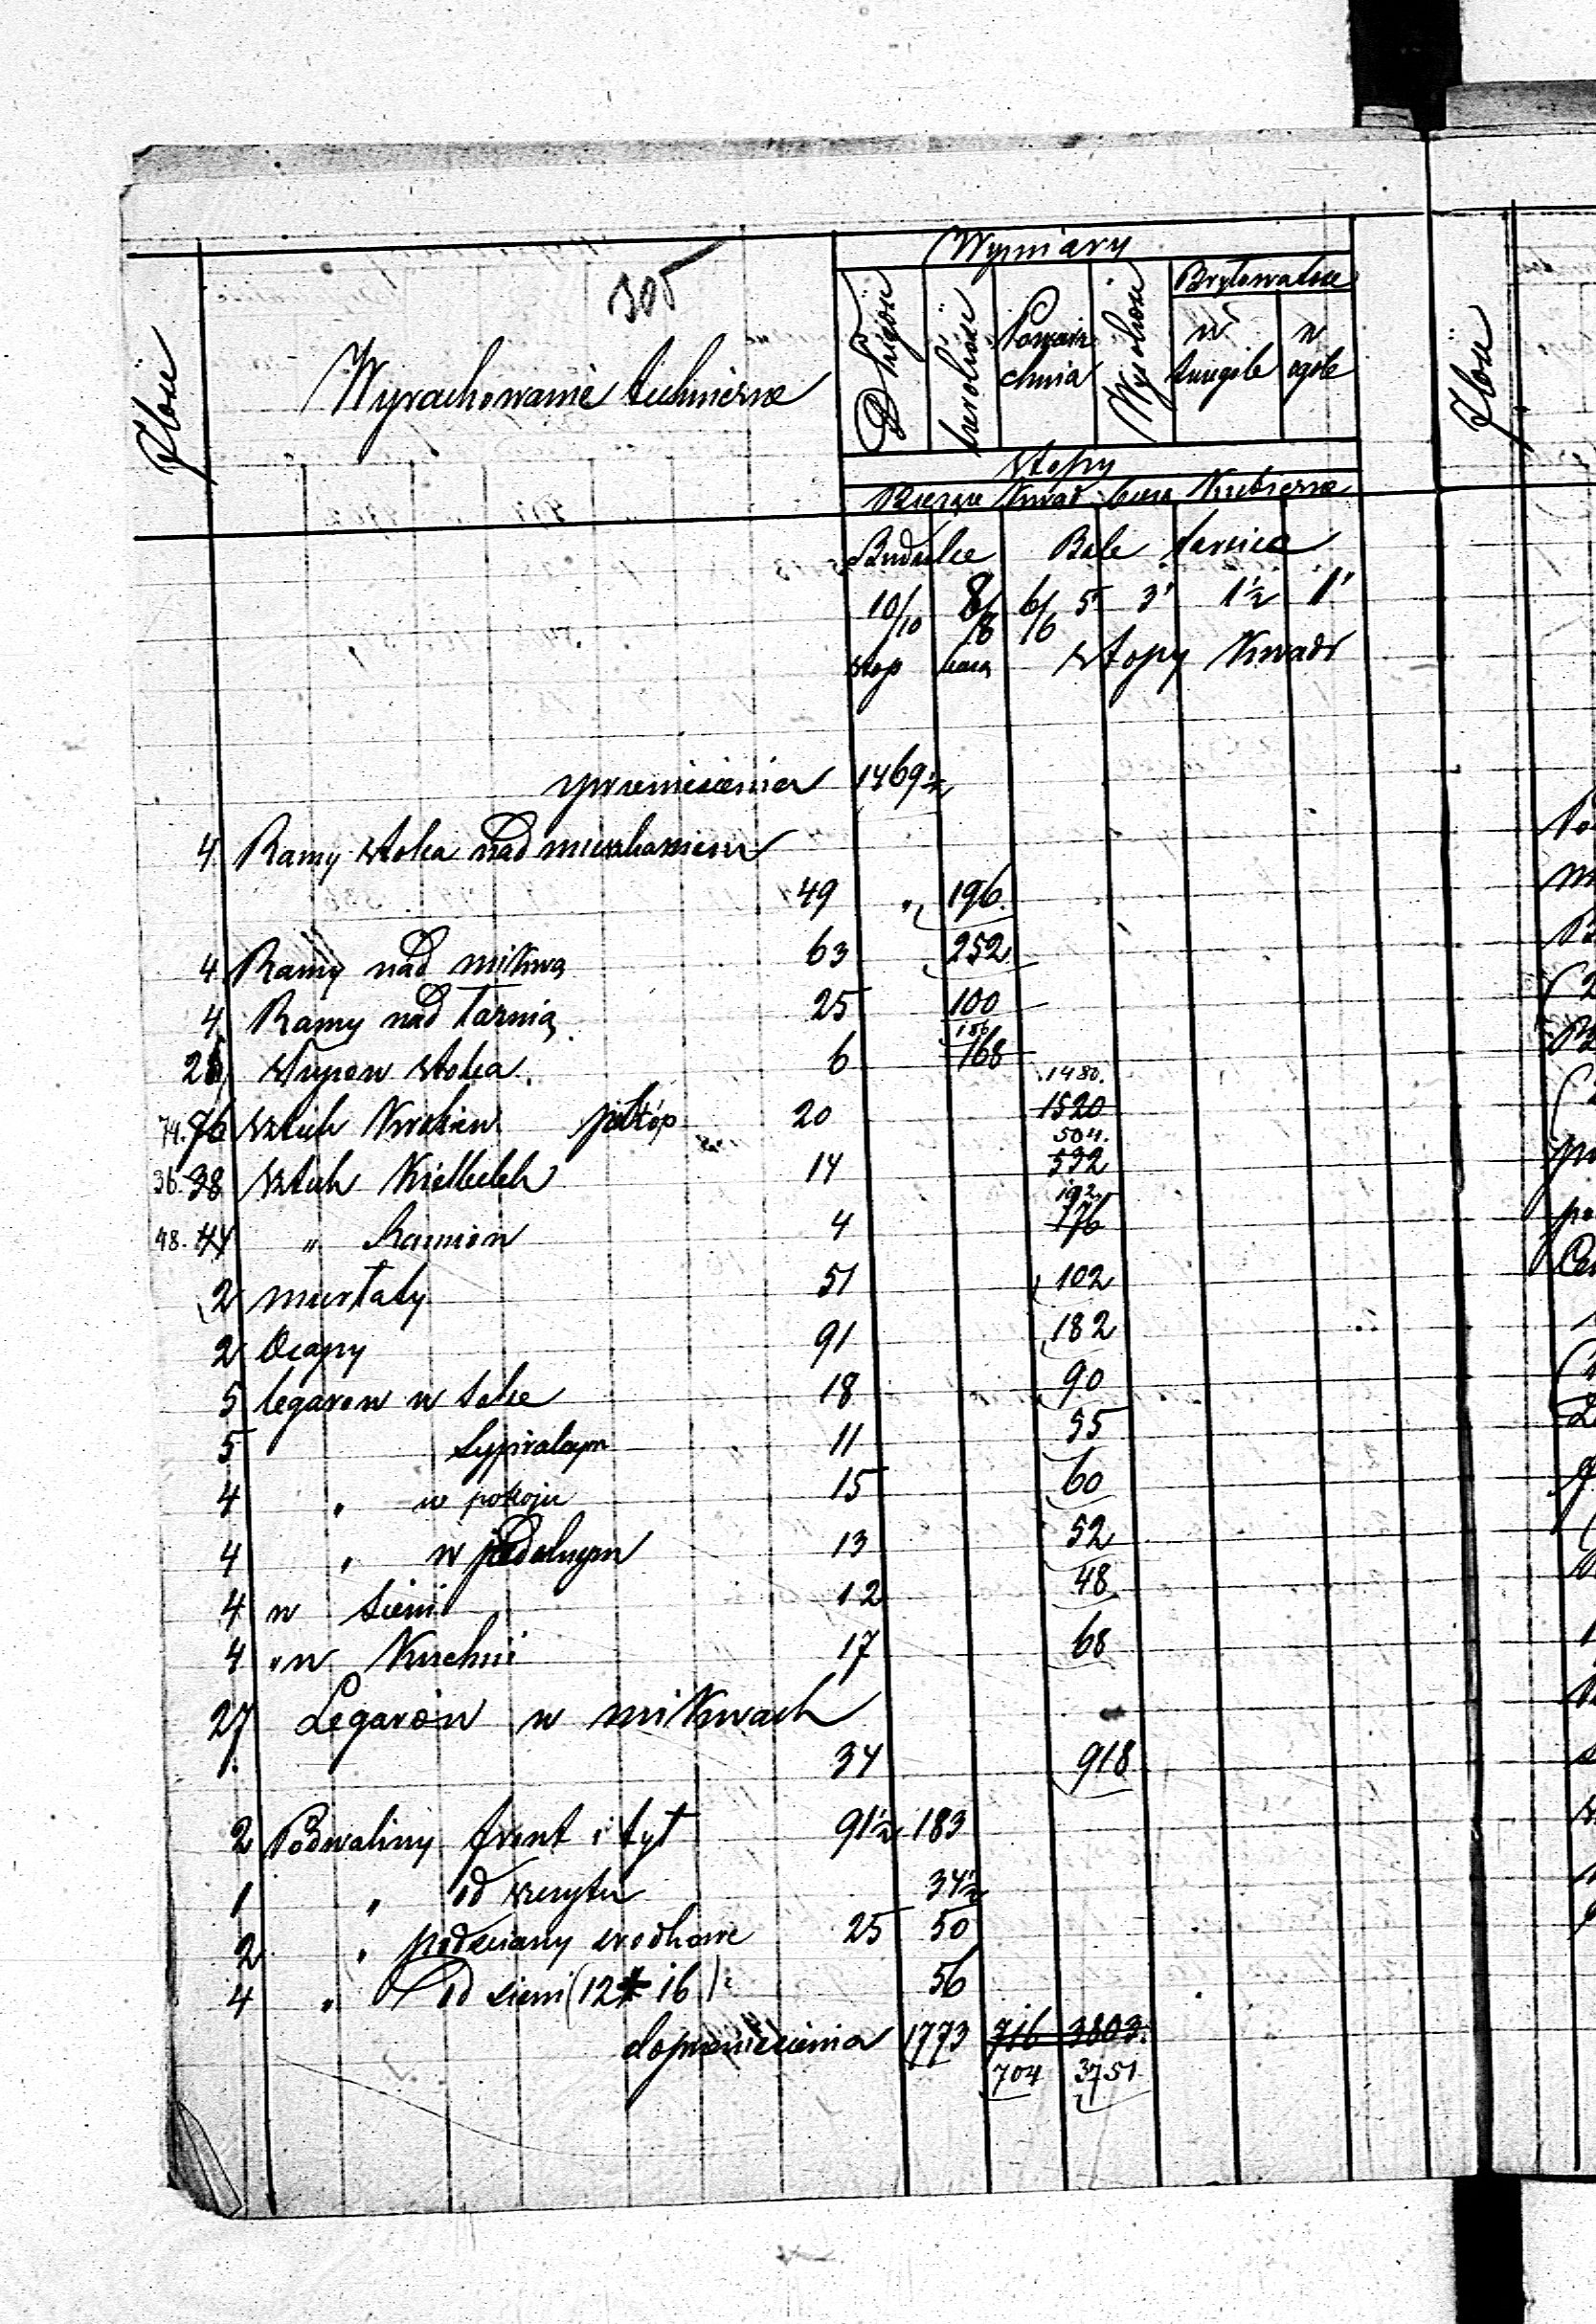 305
Wymiary
Ilość
Wyrachowanie techniczne
Długość
Szerokość
Powierz
chnia
Wysokość
Bryłowatość
w
szczególe
w
ogóle
Stopy
Bieżące Kwadratowe Kubiczne
Budulce Bale tarcice
10/10 8/8 6/6 5" 3" 1½ 1"
stop bieżą stopy Kwadr
zprzeniesienia 1469½
4 Ramy stolca nad mieszkaniem
49 " 196
4 Ramy nad mikwą 63 252
4 Ramy nad łaźnią 25 100
156
26 Słupów stolca 6 168
1480.
74. 76 sztuk Krokiew po stóp 20 1520
504.
36. 38 sztuk Kielbelek 14 532
192.
48. 44 " 4 176
2 murłaty 51 102
2 Oczapy 91 182
5 legarow w salce 18 90
5 Sypialnym 11 55
4 " w pokoju 15 60
4 " w jadalnym 13 52
4 w Sieni 12 48
4 " w Kuchni 17 68
27 Legarów w mikwach
34 918
2 Podwaliny front i tył 91½ 183
1 " od szczytu 34½
2 " podsciany srodkowe 25 50
4 " od sieni (12 * 16) 56
do przeniesienia 1773 716 3803.
704 3751
Ilość